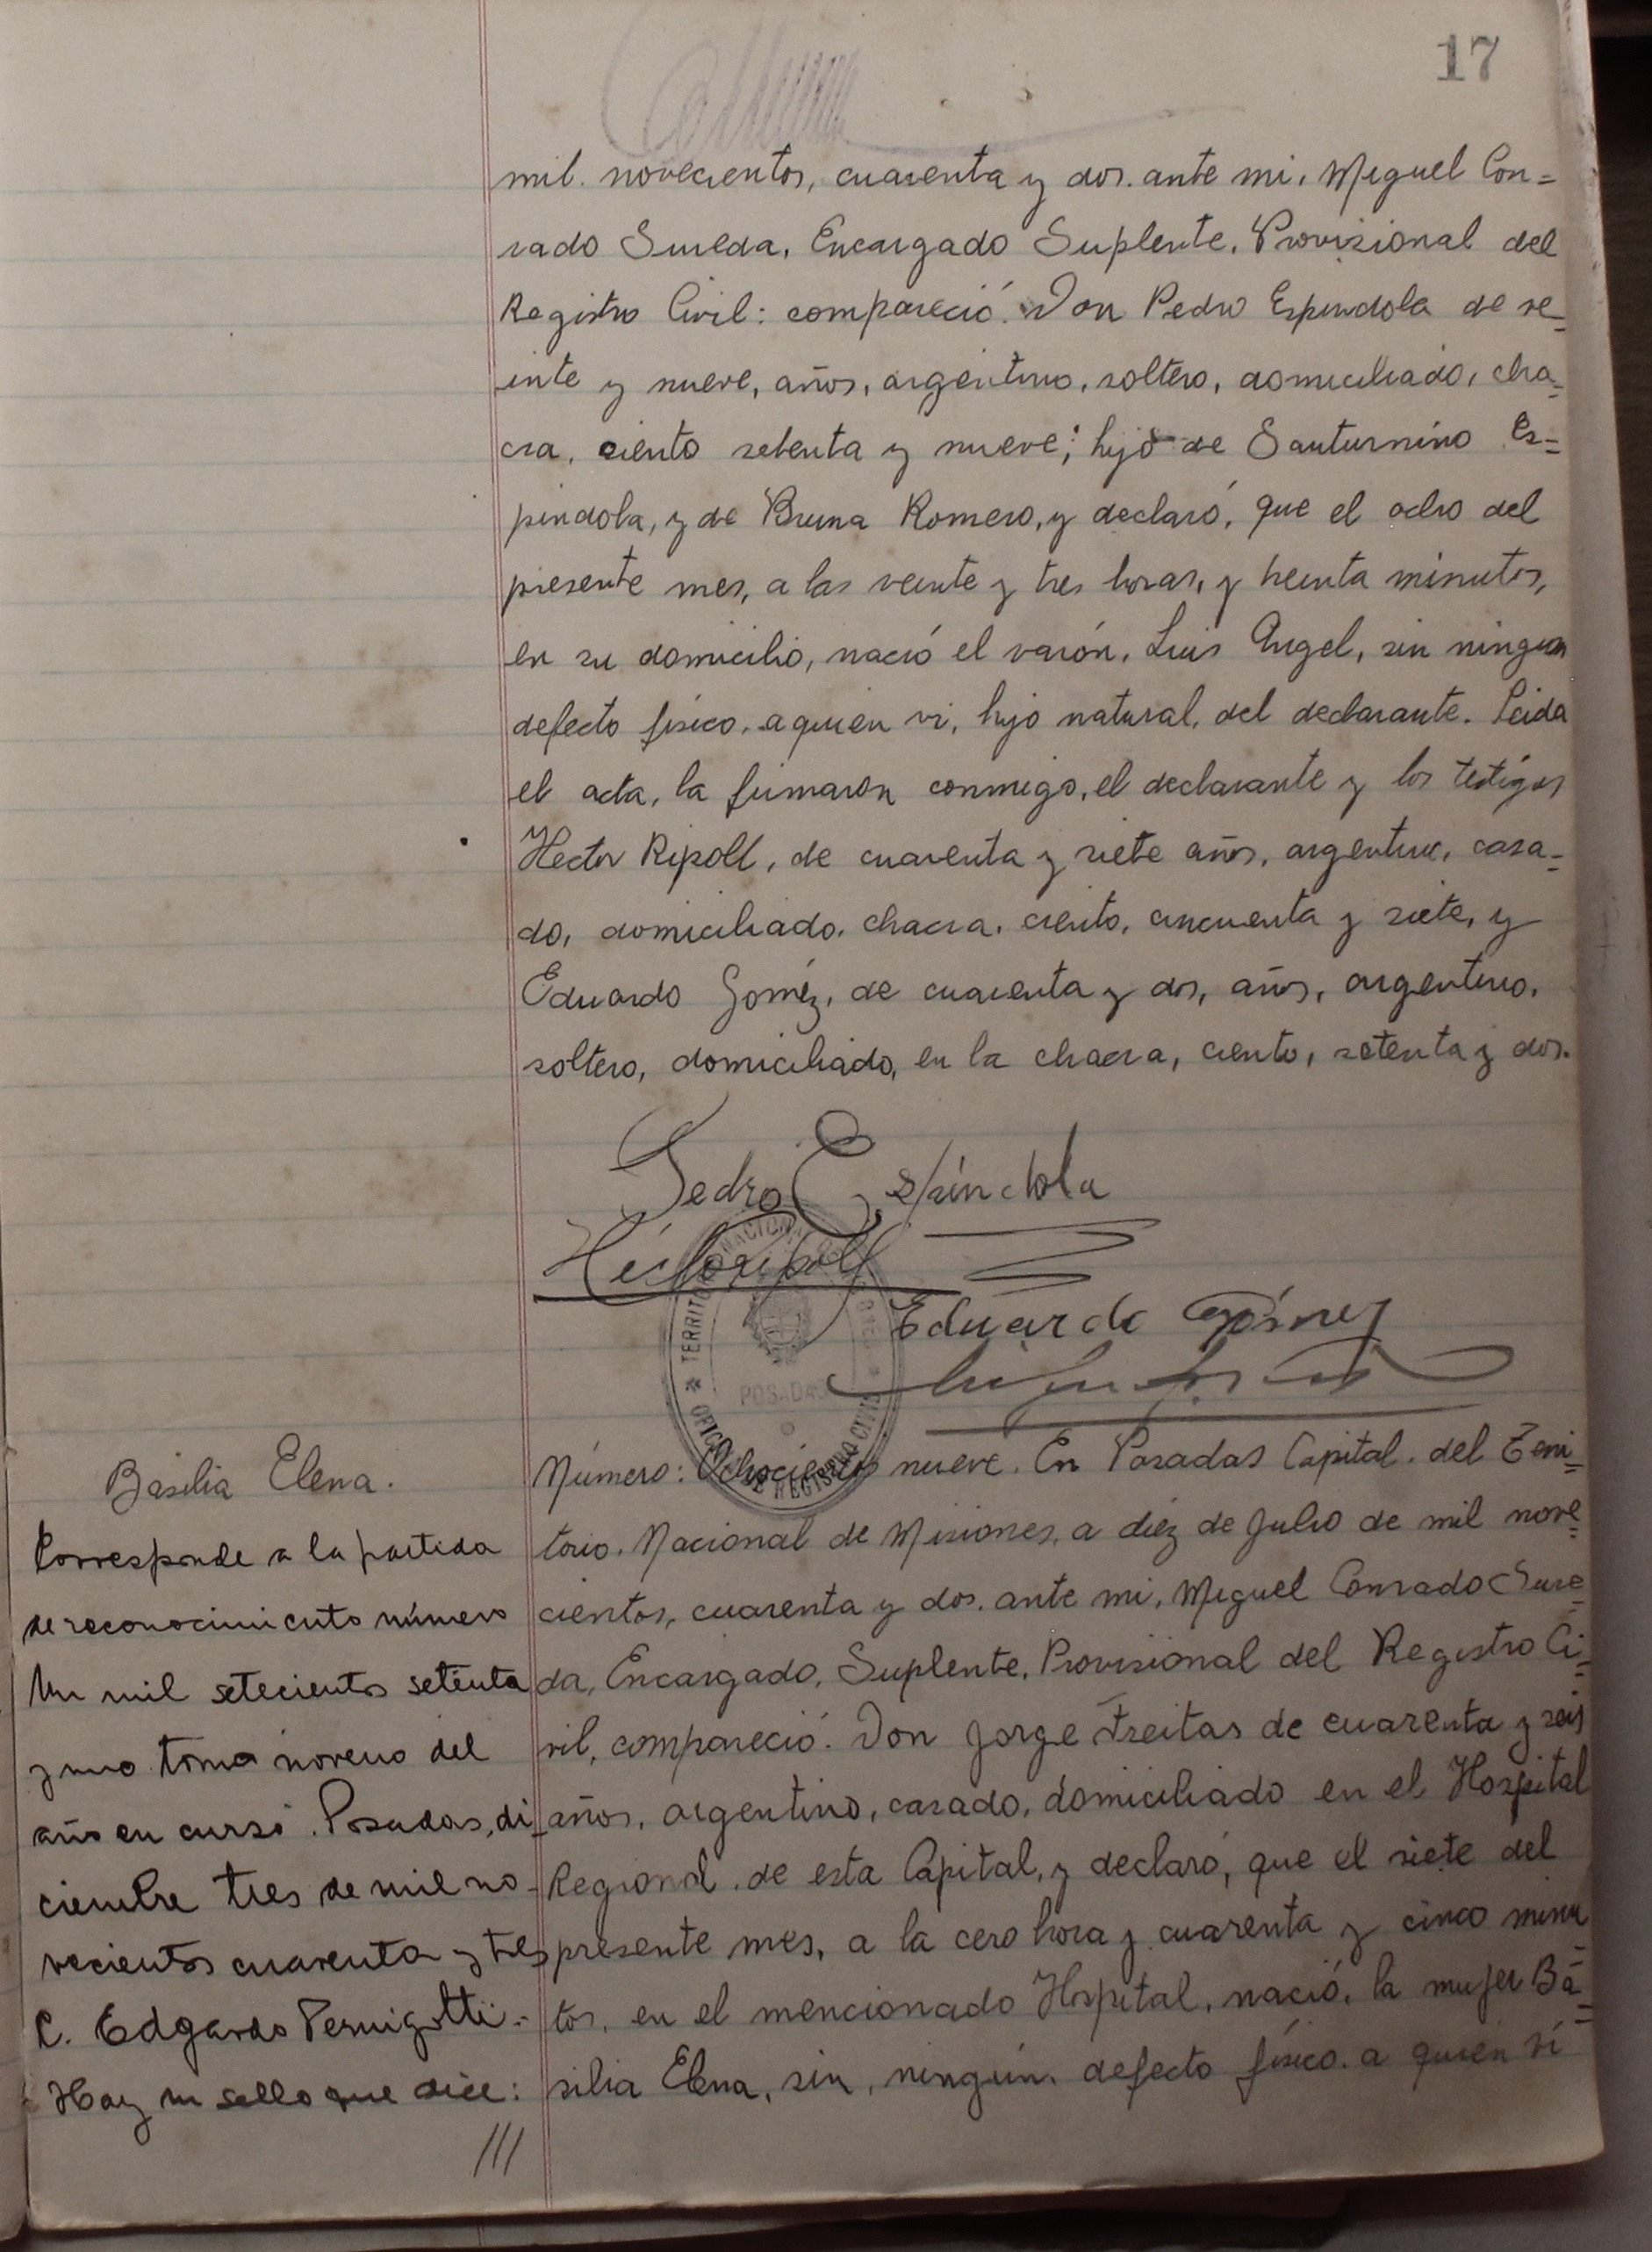 17
mil. novecientos, cuarenta y dos. ante mi, Miguel Con=
rado Sureda, Encargado Suplente, Provisional del
Registro Civil: compareció. Don Pedro Espindola de ve=
inte y nueve, años, argentino, soltero, domiciliado, cha=
cra, ciento setenta y nueve; hijo de Santurnino Es=
pindola, y de Bruna Romero, y declaró, que el ocho del
presente mes, a las veinte y tres horas, y treinta minutos,
en su domicilio, nació el varón, Luis Angel, sin ningun
defecto físico. a quien vi, hijo natural, del declarante. Leida
el acta, la firmaron conmigo, el declarante y los testigos
Hector Ripoll, de cuarenta y siete años, argentino, casa=
do, domiciliado. chacra. ciento, cincuenta y siete, y
Eduardo Goméz, de cuarenta y dos, años, argentino,
soltero, domiciliado, en la chacra, ciento, setenta y dos.
Pedro Espíndola
Héctor Ripoll
Eduardo Gómez
TERRITORIO NACIONAL DE
POSADAS
OFICINA DE REGISTRO CIVIL
Basilia Elena.
Corresponde a la partida
de reconocimiento número
Un mil setecientos setenta
y uno tomo noveno del
año en curso. Posadas, di
ciembre tres de mil no-
vecientos cuarenta y tres
C. Edgardo Pernigotti.-
Hay un sello que dice:
///
Número: Ochocientos nueve. En Posadas Capital. del Terri=
torio. Nacional de Misiones, a diéz de Julio de mil nove=
cientos, cuarenta y dos. ante mi, Miguel Conrado Sure=
da, Encargado, Suplente, Provisional del Registro Ci=
vil, compareció. Don Jorge Freitas de cuarenta y seis
años, argentino, casado, domiciliado en el Hospital
Regional. de esta Capital, y declaró, que el siete del
presente mes, a la cero hora y cuarenta y cinco minu=
tos, en el mencionado Hospital, nació, la mujer Bá=
silia Elena, sin, ningún. defecto físico. a quien ví